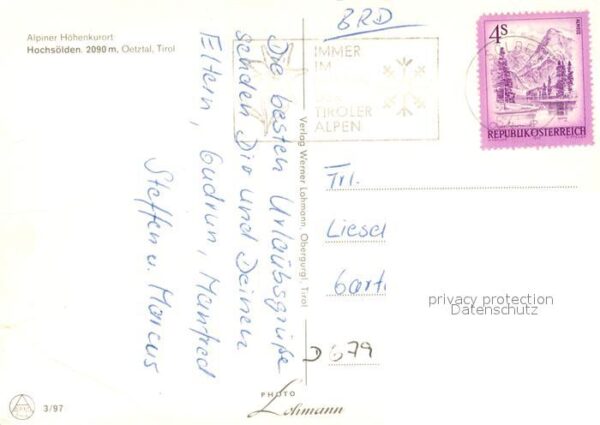 Alpiner Höhenkurort
Hochsölden. 2090 m, Oetztal, Tirol
BRD
IMMER
IM
TIROLER
ALPEN
4 S
ALMSEE
REPUBLIK ÖSTERREICH
Die besten Urlaubsgrüße
senden Dir und Deinen
Eltern, Gudrun, Manfred
Steffen u. Marcus
Verlag Werner Lohmann, Obergurgl, Tirol
Frl.
Liesel
Gart.
privacy protection
Datenschutz
D 679
PHOTO
Lohmann
3/97